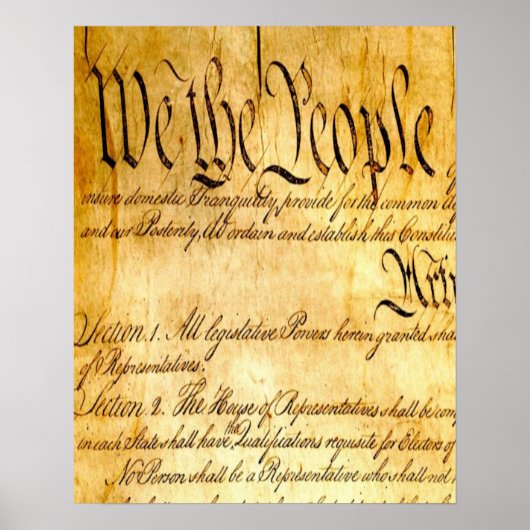 We the People
insure domestic Tranquility, provide for the common
and our Posterity, do ordain and establish this Constitu
Arti
Section 1. All legislative Powers herein granted sha
of Representatives.
Section 2. The House of Representatives shall be com
in each State shall have the Qualifications requisite for Electors of
No Person shall be a Representative who shall not